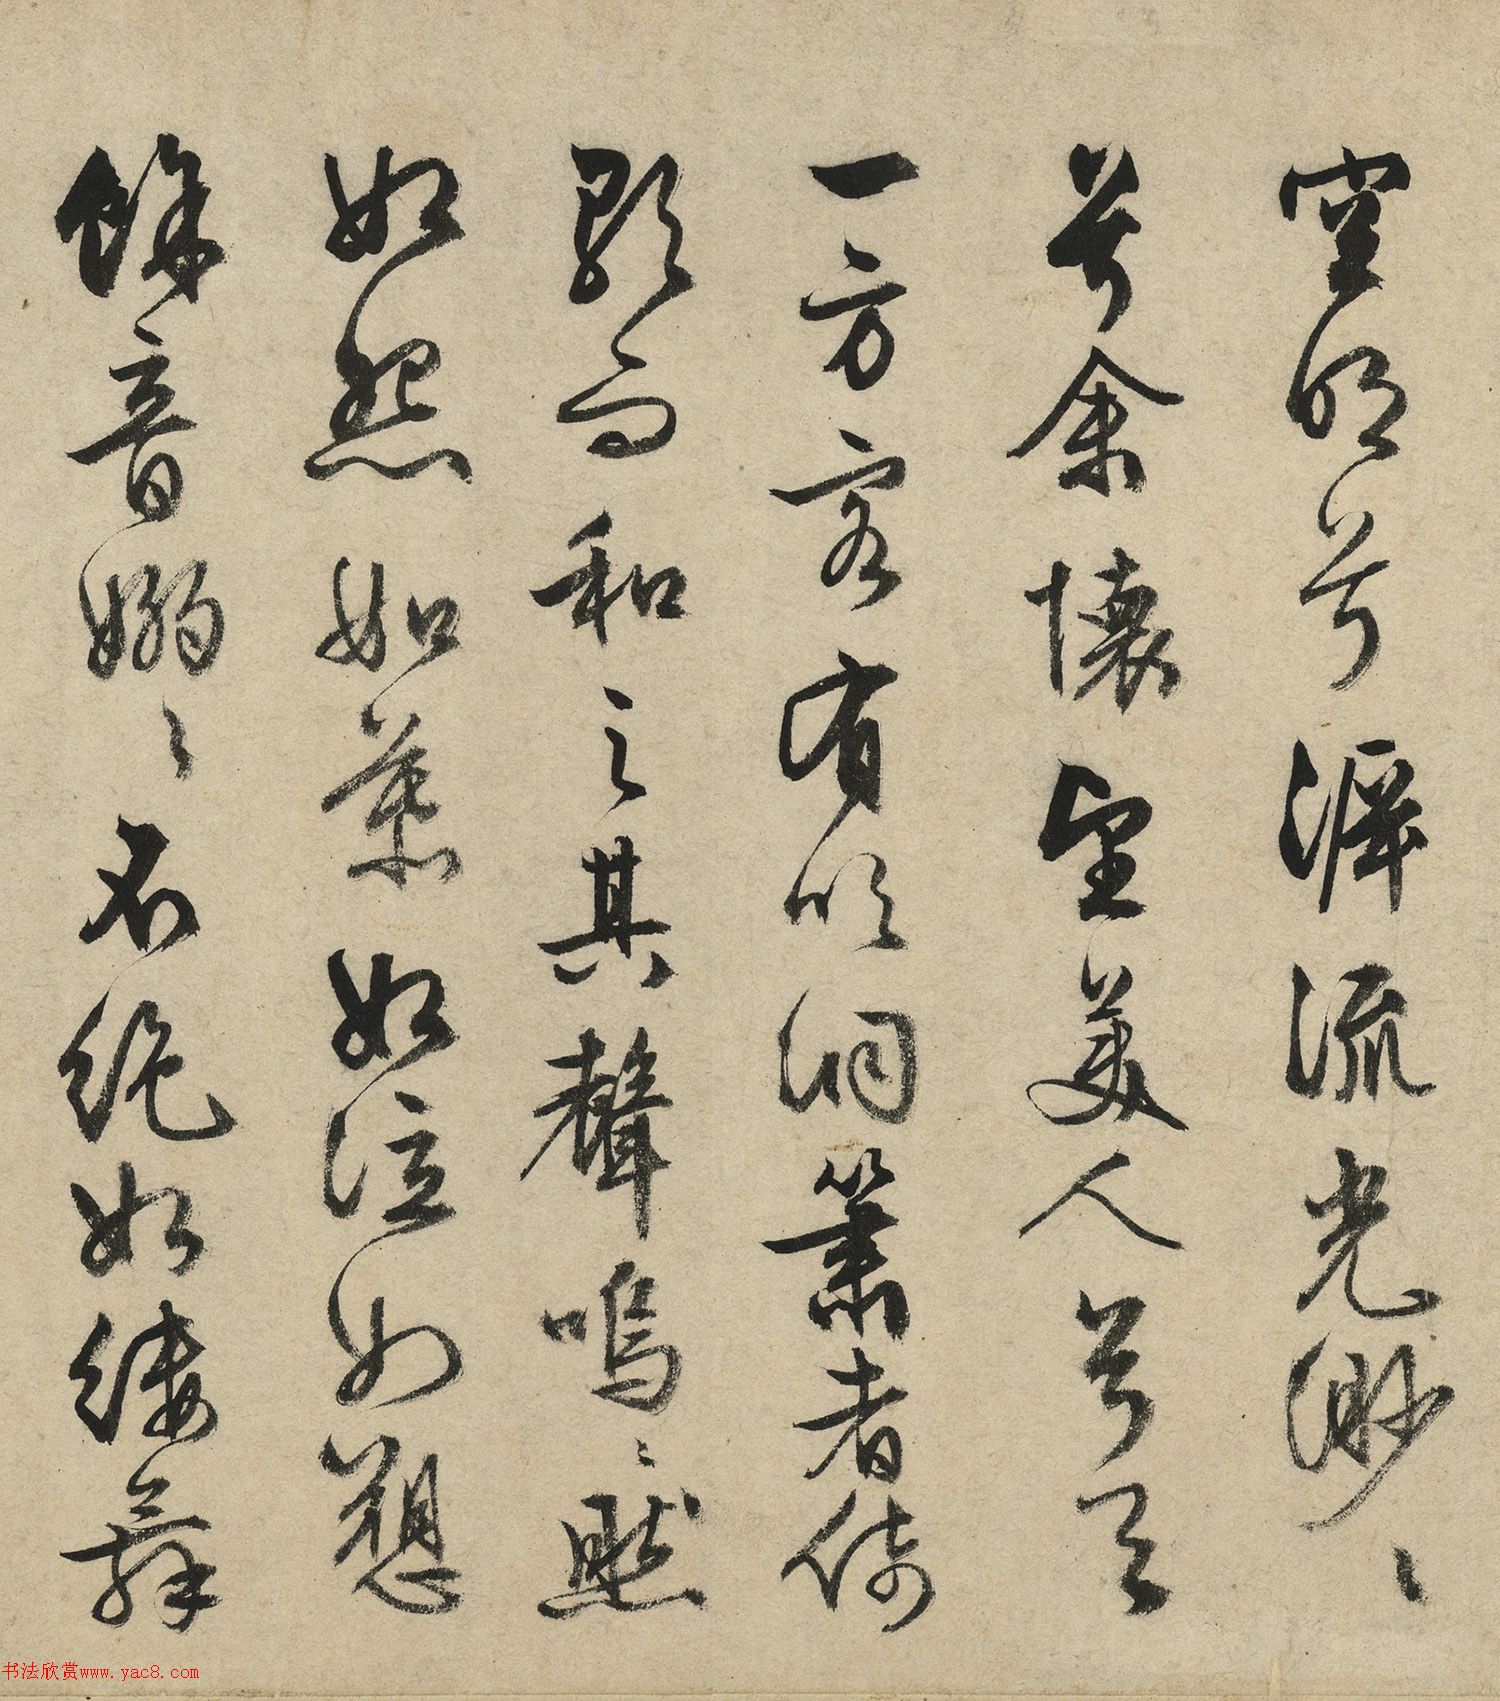 空明兮泝流光渺〻
兮余懷望美人兮天
一方客有吹洞簫者倚
歌而和之其聲嗚〻然
如怨如慕如泣如愬
餘音嫋〻不絕如縷舞
书法欣赏www.yac8.com